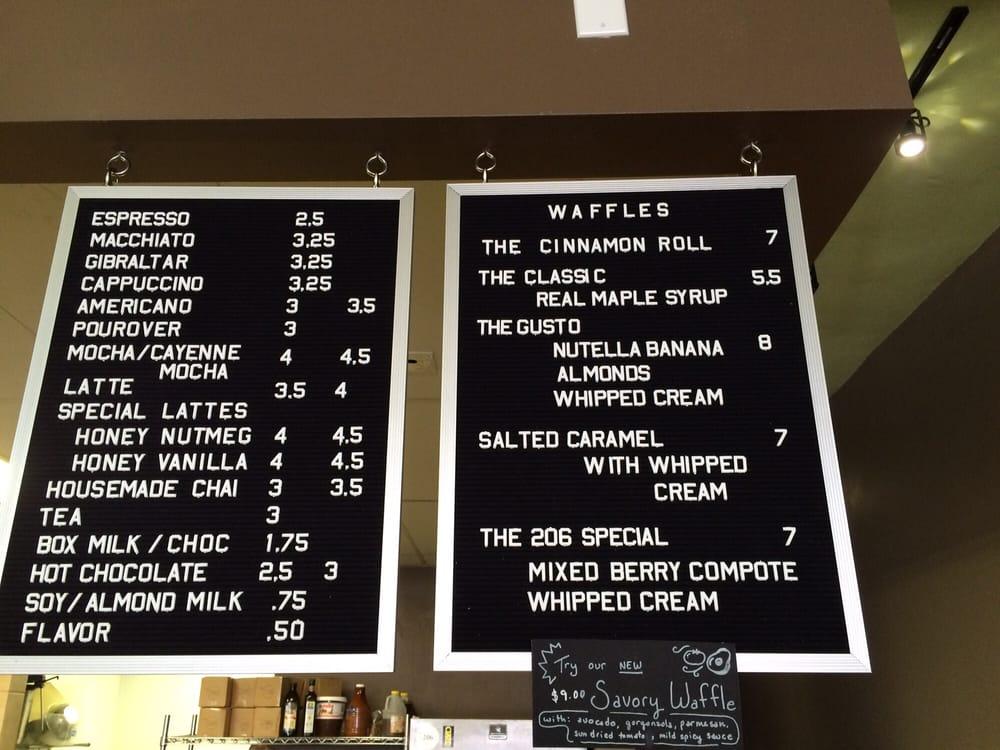 ESPRESSO 2.5
MACCHIATO 3.25
GIBRALTAR 3.25
CAPPUCCINO 3.25
AMERICANO 3 3.5
POUROVER 3
MOCHA/CAYENNE 4 4.5
MOCHA
LATTE 3.5 4
SPECIAL LATTES
HONEY NUTMEG 4 4.5
HONEY VANILLA 4 4.5
HOUSEMADE CHAI 3 3.5
TEA 3
BOX MILK / CHOC 1.75
HOT CHOCOLATE 2.5 3
SOY/ALMOND MILK .75
FLAVOR .50
WAFFLES
THE CINNAMON ROLL 7
THE CLASSIC 5.5
REAL MAPLE SYRUP
THE GUSTO
NUTELLA BANANA 8
ALMONDS
WHIPPED CREAM
SALTED CARAMEL 7
WITH WHIPPED
CREAM
THE 206 SPECIAL 7
MIXED BERRY COMPOTE
WHIPPED CREAM
Try our NEW
$9.00 Savory Waffle
with: avocado, gorgonzola, parmesan,
sun dried tomato, mild spicy sauce